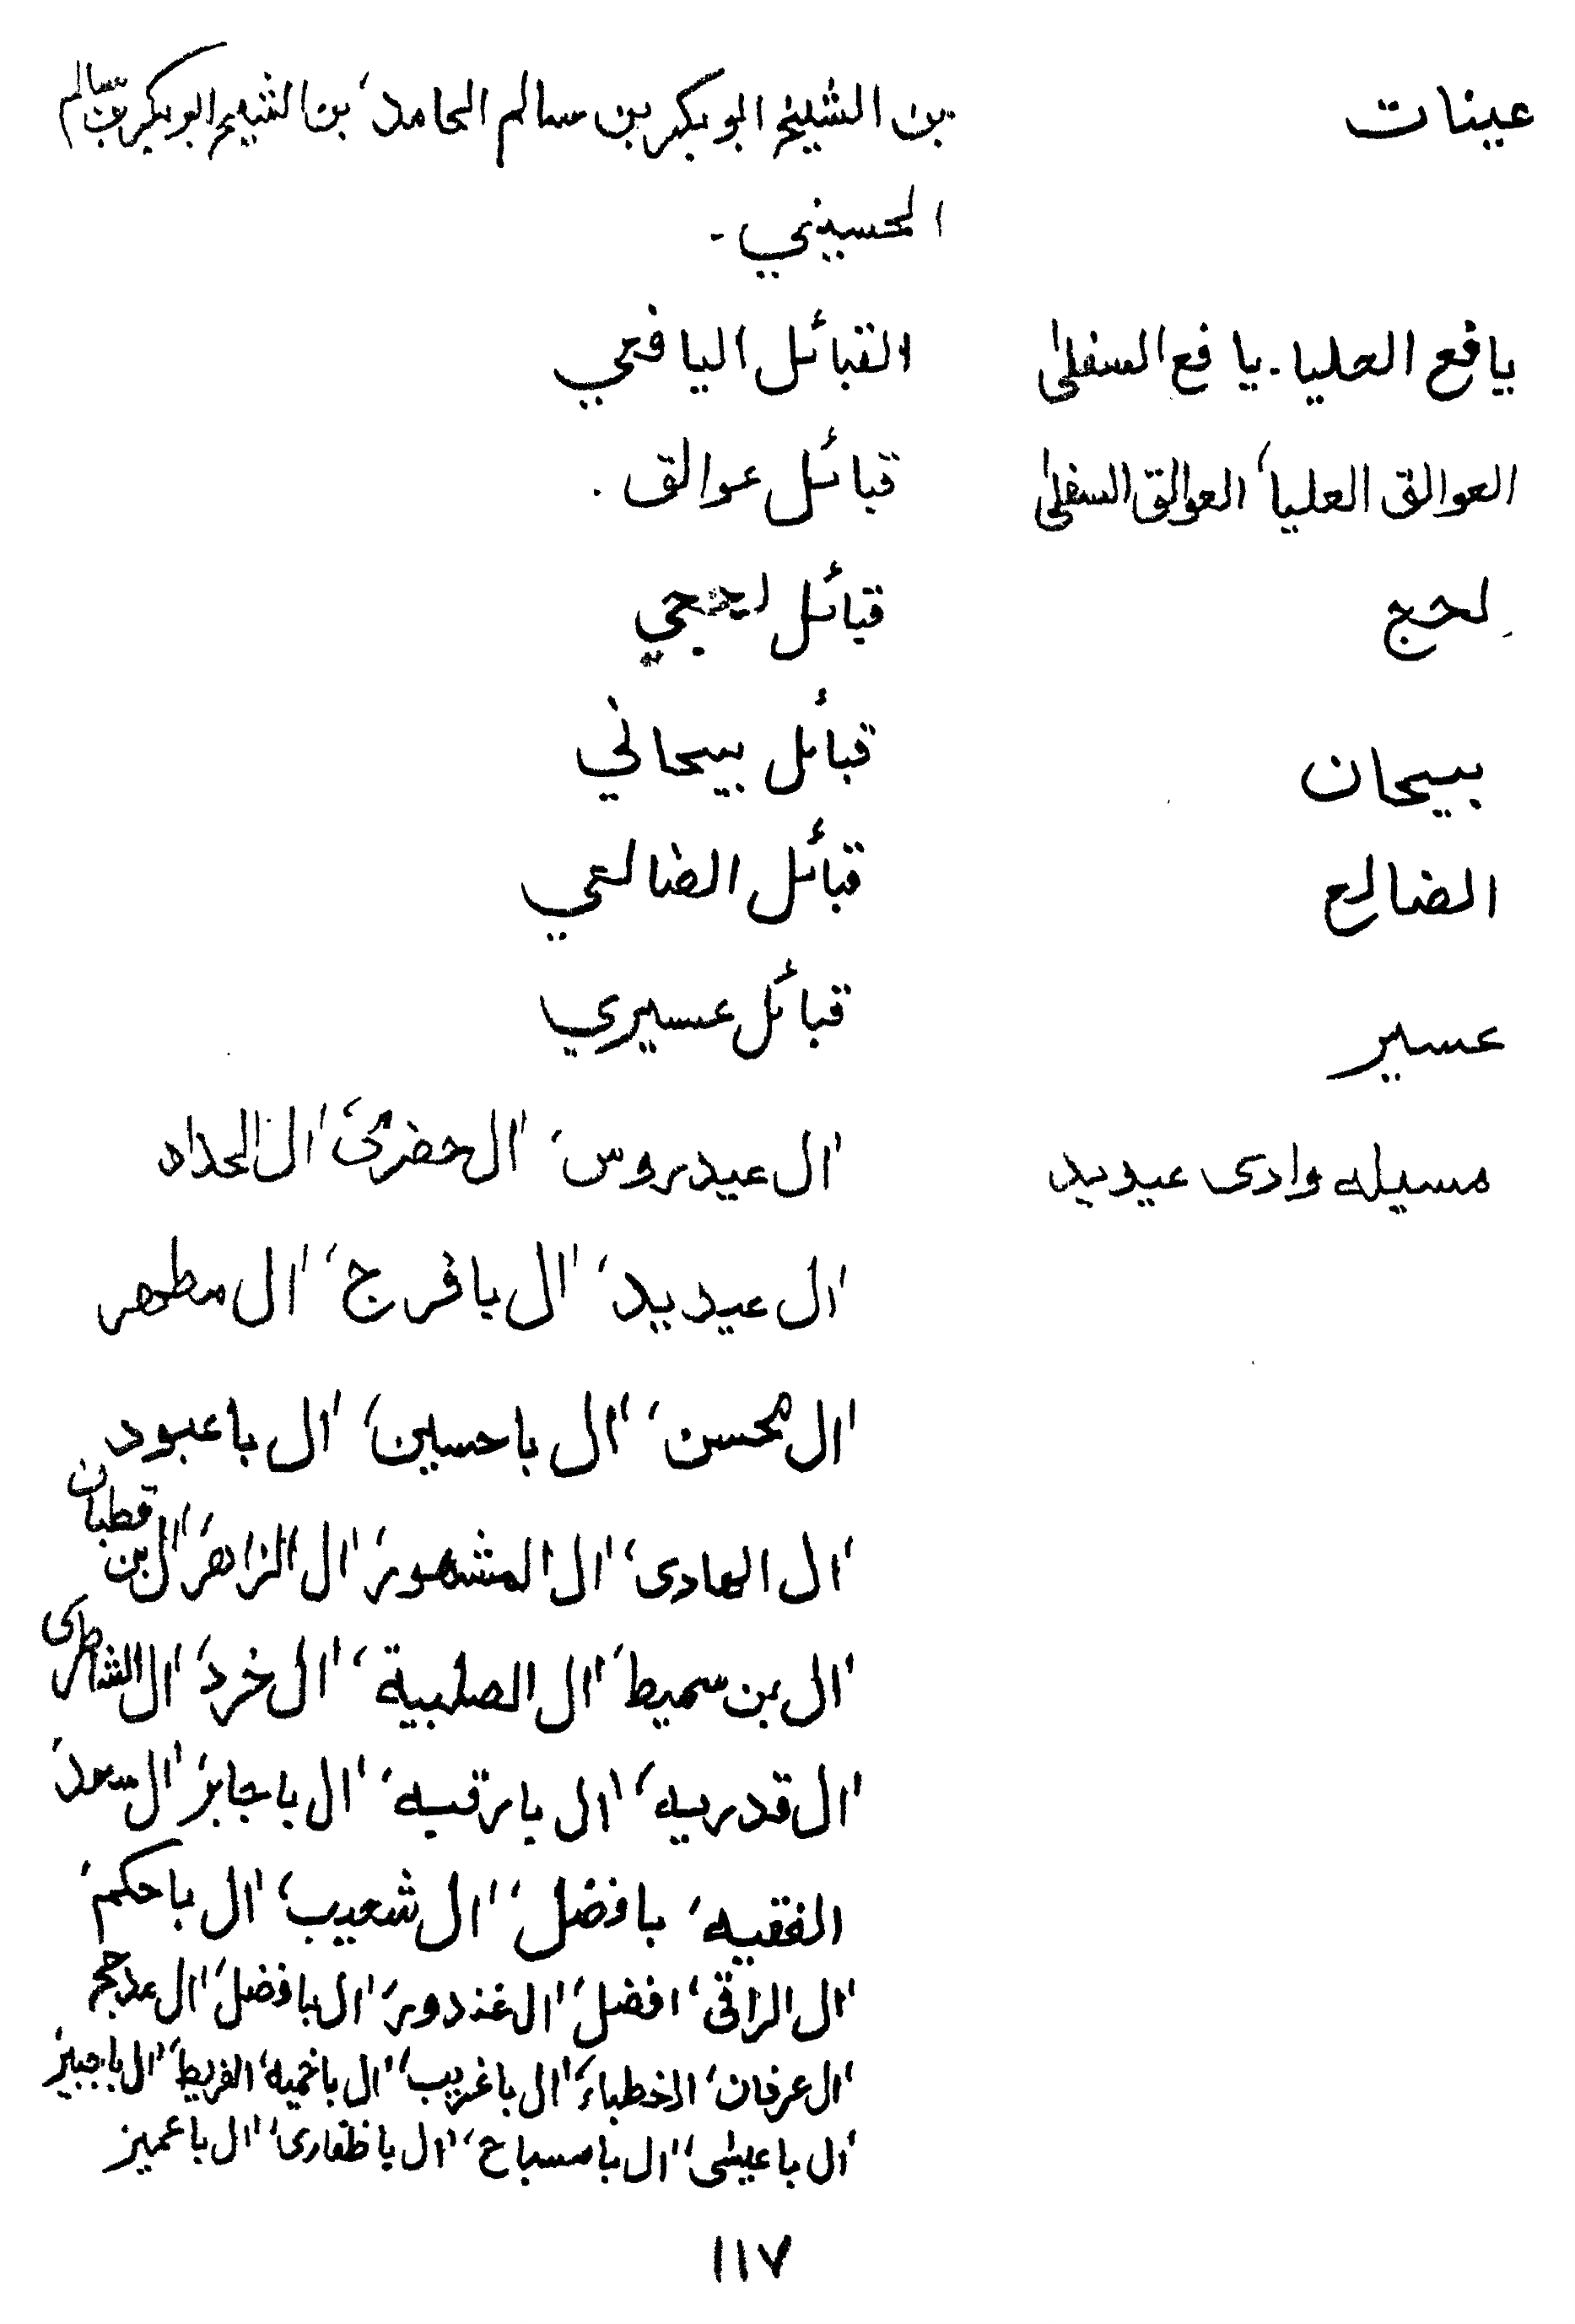 عينات بن الشيخ ابو بكر بن سالم الحامد، بن الشيخ ابو بكر بن سالم
الحسيني -
يافع العليا - يافع السفلى القبائل اليافعي
العوالق العليا، العوالق السفلى قبائل عوالق .
لحج قبائل لحجي
بيحان قبائل بيحاني
الضالع قبائل الضالعي
عسير قبائل عسيري
مسيله وادى عيديد ال عيدروس، ال حضرمى، ال الحداد
ال عيديد، ال بافرج، ال مطهر
ال محسن، ال باحسين، ال باعبود
ال الهادى، ال المشهور، ال الزاهر، ال بن قطبان
ال بن سميط، ال الصليبية، ال خرد، ال الشاطرى
ال قدريه، ال بارقبه، ال باجابر، ال سعد،
الفقيه، بافضل، ال شعيب، ال باحكم،
ال الراقى، افضل، ال غندور، ال بافضل، ال مدحج
ال عرفان، الخطباء، ال باغريب، ال الفريط، ال باجبير
ال باعيسى، ال بامسباح، ال باظفارى، ال باعمير
١١٧